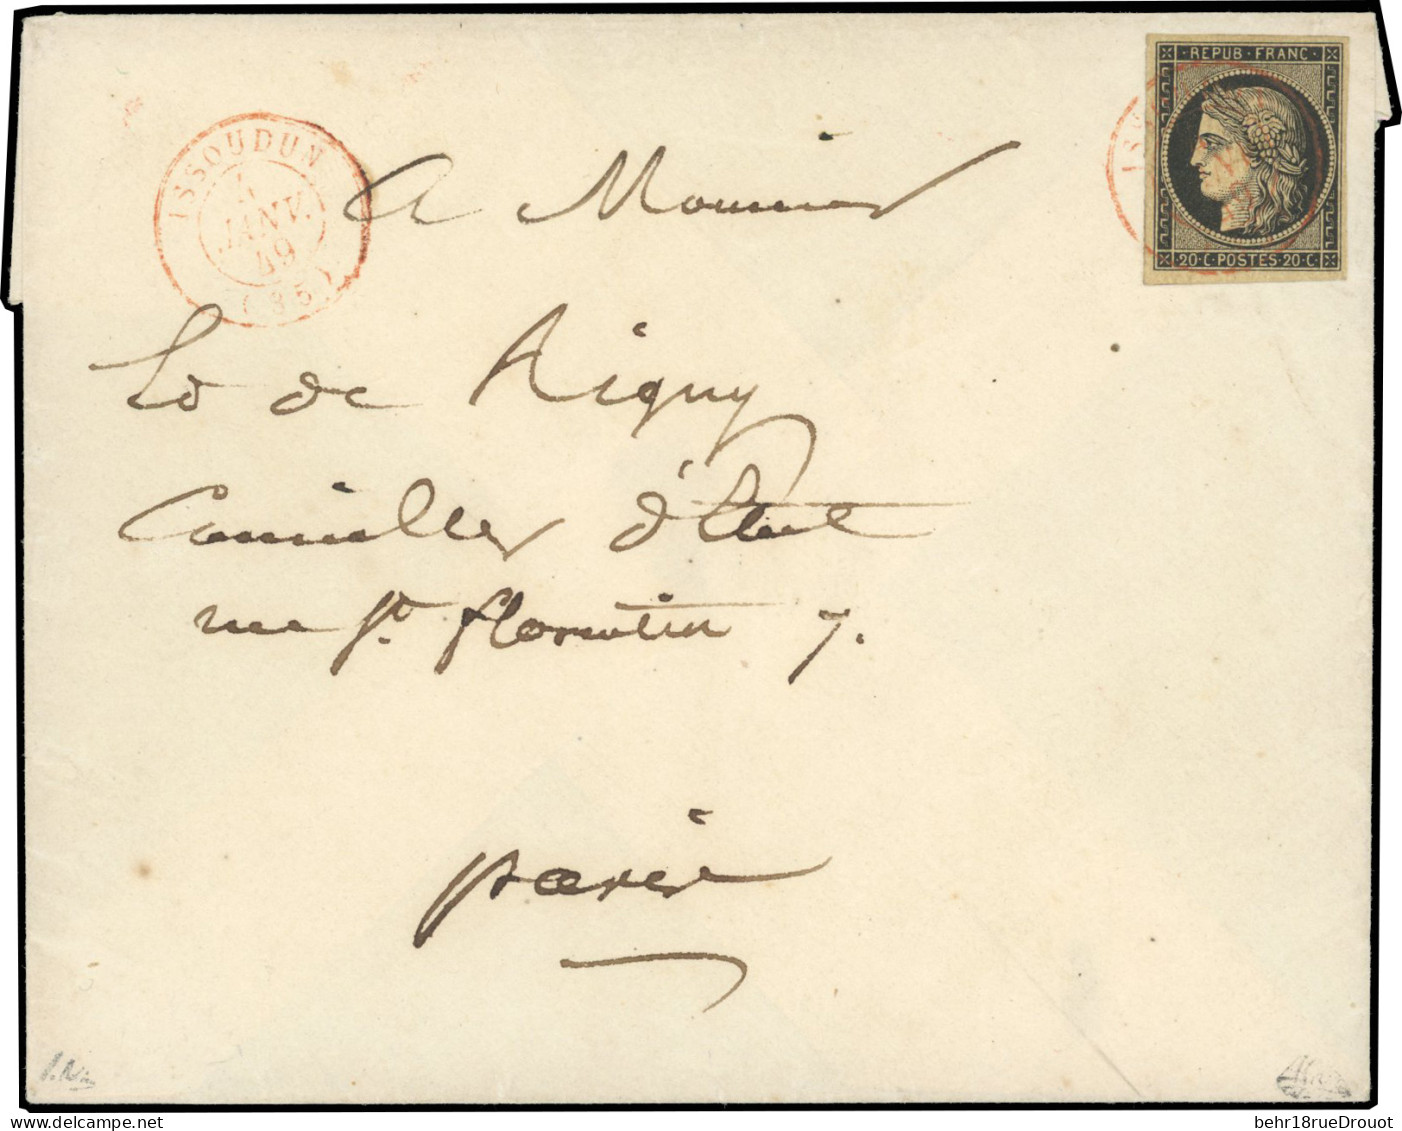 REPUB·FRANC·
20·C·POSTES·20·C
ISSOUDUN
JANV.
49
(35)
A Monsieur
Ed de Rigny
Conseiller d'État
rue St. florentin 7.
paris
behr18rueDrouot